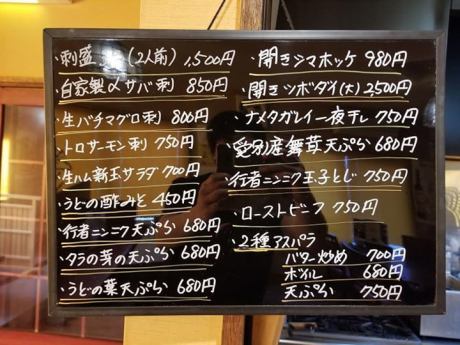 ・刺盛 (2人前) 1,500円
・自家製〆サバ刺 850円
・生バチマグロ刺 800円
・トロサーモン刺 750円
・生ハム新玉サラダ 700円
・うどの酢みそ 450円
・行者ニンニク天ぷら 680円
・タラの芽の天ぷら 680円
・うどの葉天ぷら 680円
・開きシマホッケ 980円
・開きシボダイ(大) 2,500円
・ナメタガレイ一夜干し 750円
・愛別産舞茸天ぷら 680円
・行者ニンニク玉子とじ 750円
・ローストビーフ 750円
・2種アスパラ
バター炒め 700円
ボイル 680円
天ぷら 750円